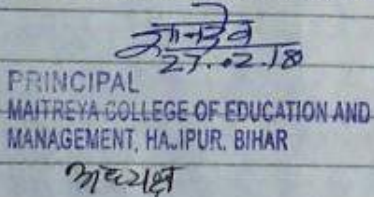 ज्ञानदेव
27.02.18
PRINCIPAL
MAITREYA COLLEGE OF EDUCATION AND
MANAGEMENT, HAJIPUR, BIHAR
अध्यक्ष